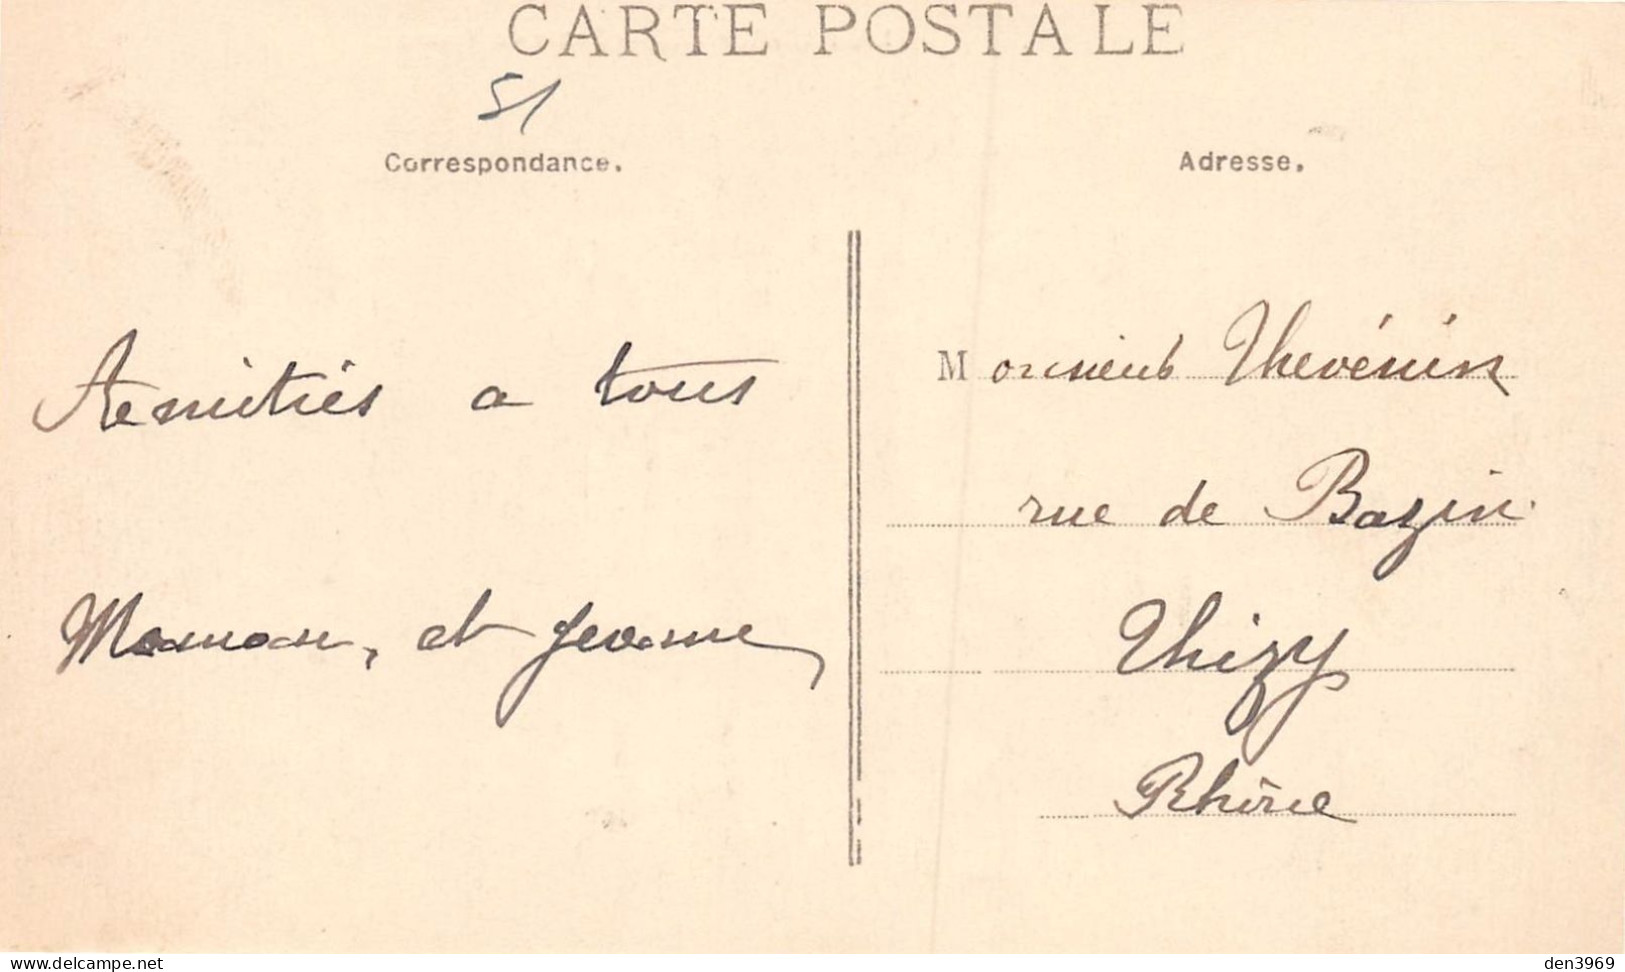 CARTE POSTALE
51
Correspondance.
Adresse.
Amitiés a tous
Maman, et Jeanne
Monsieur Thevénin
rue de Bazin
Thizy
Rhône
www.delcampe.net
den3969